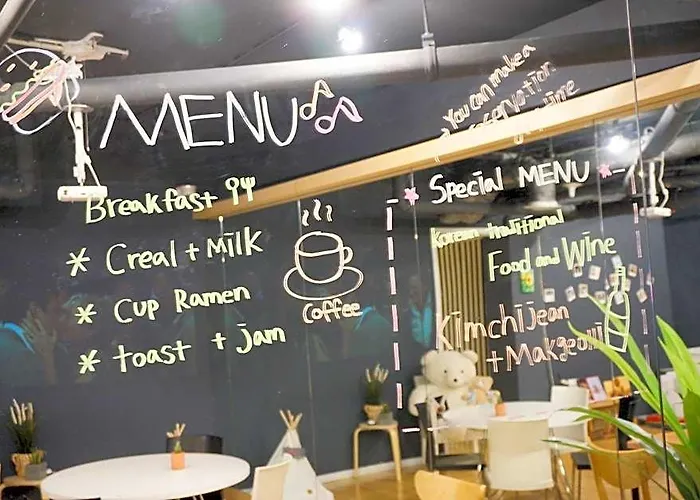 MENU
Breakfast
* Creal + Milk
* Cup Ramen
* toast + jam
Coffee
You can make a
reservation
Special MENU
Korean traditional
Food and Wine
Kimchijean
+ Makgeolli